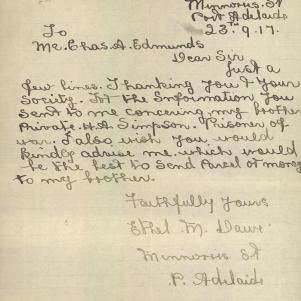 Minnorus. St
Port Adelaide
23rd 9.17.
To
Mr. Chas. A. Edmunds
Dear Sir
Just a
few lines. Thanking you & your
Society. For the Information you
sent to me concering my brother
Private. H.A. Simpson. Prisoner of
war. I also wish you would
kindly advise me which would
be the best to send Parcel or money
to my brother.
Faithfully Yours
Ethel M. Dawe
Minnorus St
P. Adelaide